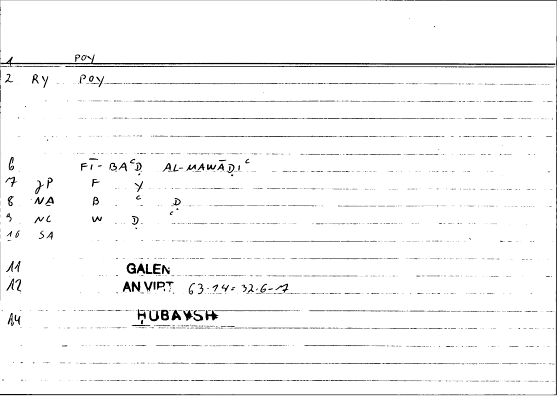 1 POY
2 RY POY
6 FĪ-BAᶜḌ AL-MAWĀḌIᶜ
7 JP F Y
8 NA B ᶜ Ḍ
9 NC W Ḍ ᶜ
10 SA
11 GALEN
12 AN VIRT 63.14=32.6-7
14 ḤUBAYSH